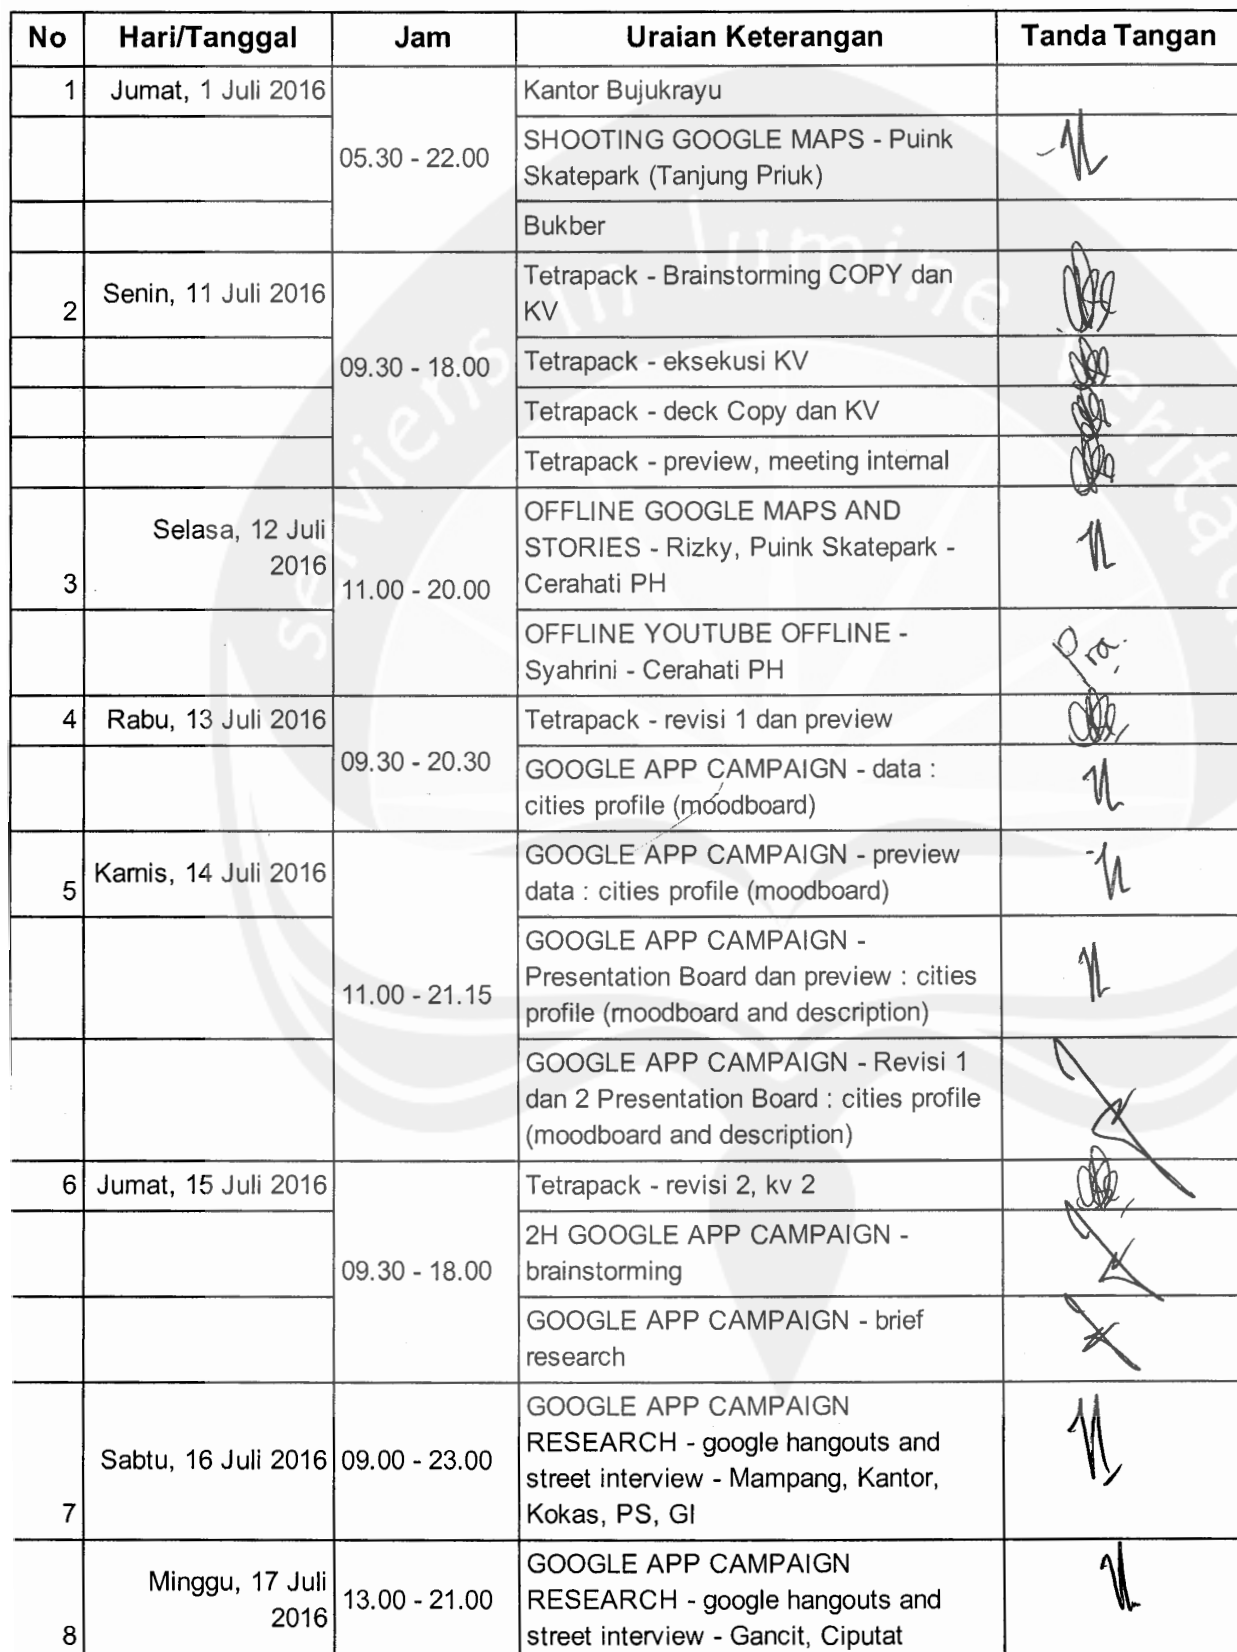 No Hari/Tanggal Jam Uraian Keterangan Tanda Tangan
1 Jumat, 1 Juli 2016 Kantor Bujukrayu
05.30 - 22.00 SHOOTING GOOGLE MAPS - Puink
Skatepark (Tanjung Priuk)
Bukber
2 Senin, 11 Juli 2016 Tetrapack - Brainstorming COPY dan
KV
09.30 - 18.00 Tetrapack - eksekusi KV
Tetrapack - deck Copy dan KV
Tetrapack - preview, meeting internal
3 Selasa, 12 Juli
2016
11.00 - 20.00 OFFLINE GOOGLE MAPS AND
STORIES - Rizky, Puink Skatepark -
Cerahati PH
OFFLINE YOUTUBE OFFLINE -
Syahrini - Cerahati PH
4 Rabu, 13 Juli 2016 Tetrapack - revisi 1 dan preview
09.30 - 20.30 GOOGLE APP CAMPAIGN - data :
cities profile (moodboard)
5 Kamis, 14 Juli 2016 GOOGLE APP CAMPAIGN - preview
data : cities profile (moodboard)
11.00 - 21.15 GOOGLE APP CAMPAIGN -
Presentation Board dan preview : cities
profile (moodboard and description)
GOOGLE APP CAMPAIGN - Revisi 1
dan 2 Presentation Board : cities profile
(moodboard and description)
6 Jumat, 15 Juli 2016 Tetrapack - revisi 2, kv 2
09.30 - 18.00 2H GOOGLE APP CAMPAIGN -
brainstorming
GOOGLE APP CAMPAIGN - brief
research
7 Sabtu, 16 Juli 2016 09.00 - 23.00 GOOGLE APP CAMPAIGN
RESEARCH - google hangouts and
street interview - Mampang, Kantor,
Kokas, PS, GI
8 Minggu, 17 Juli
2016
13.00 - 21.00 GOOGLE APP CAMPAIGN
RESEARCH - google hangouts and
street interview - Gancit, Ciputat
serviens in lumine verita